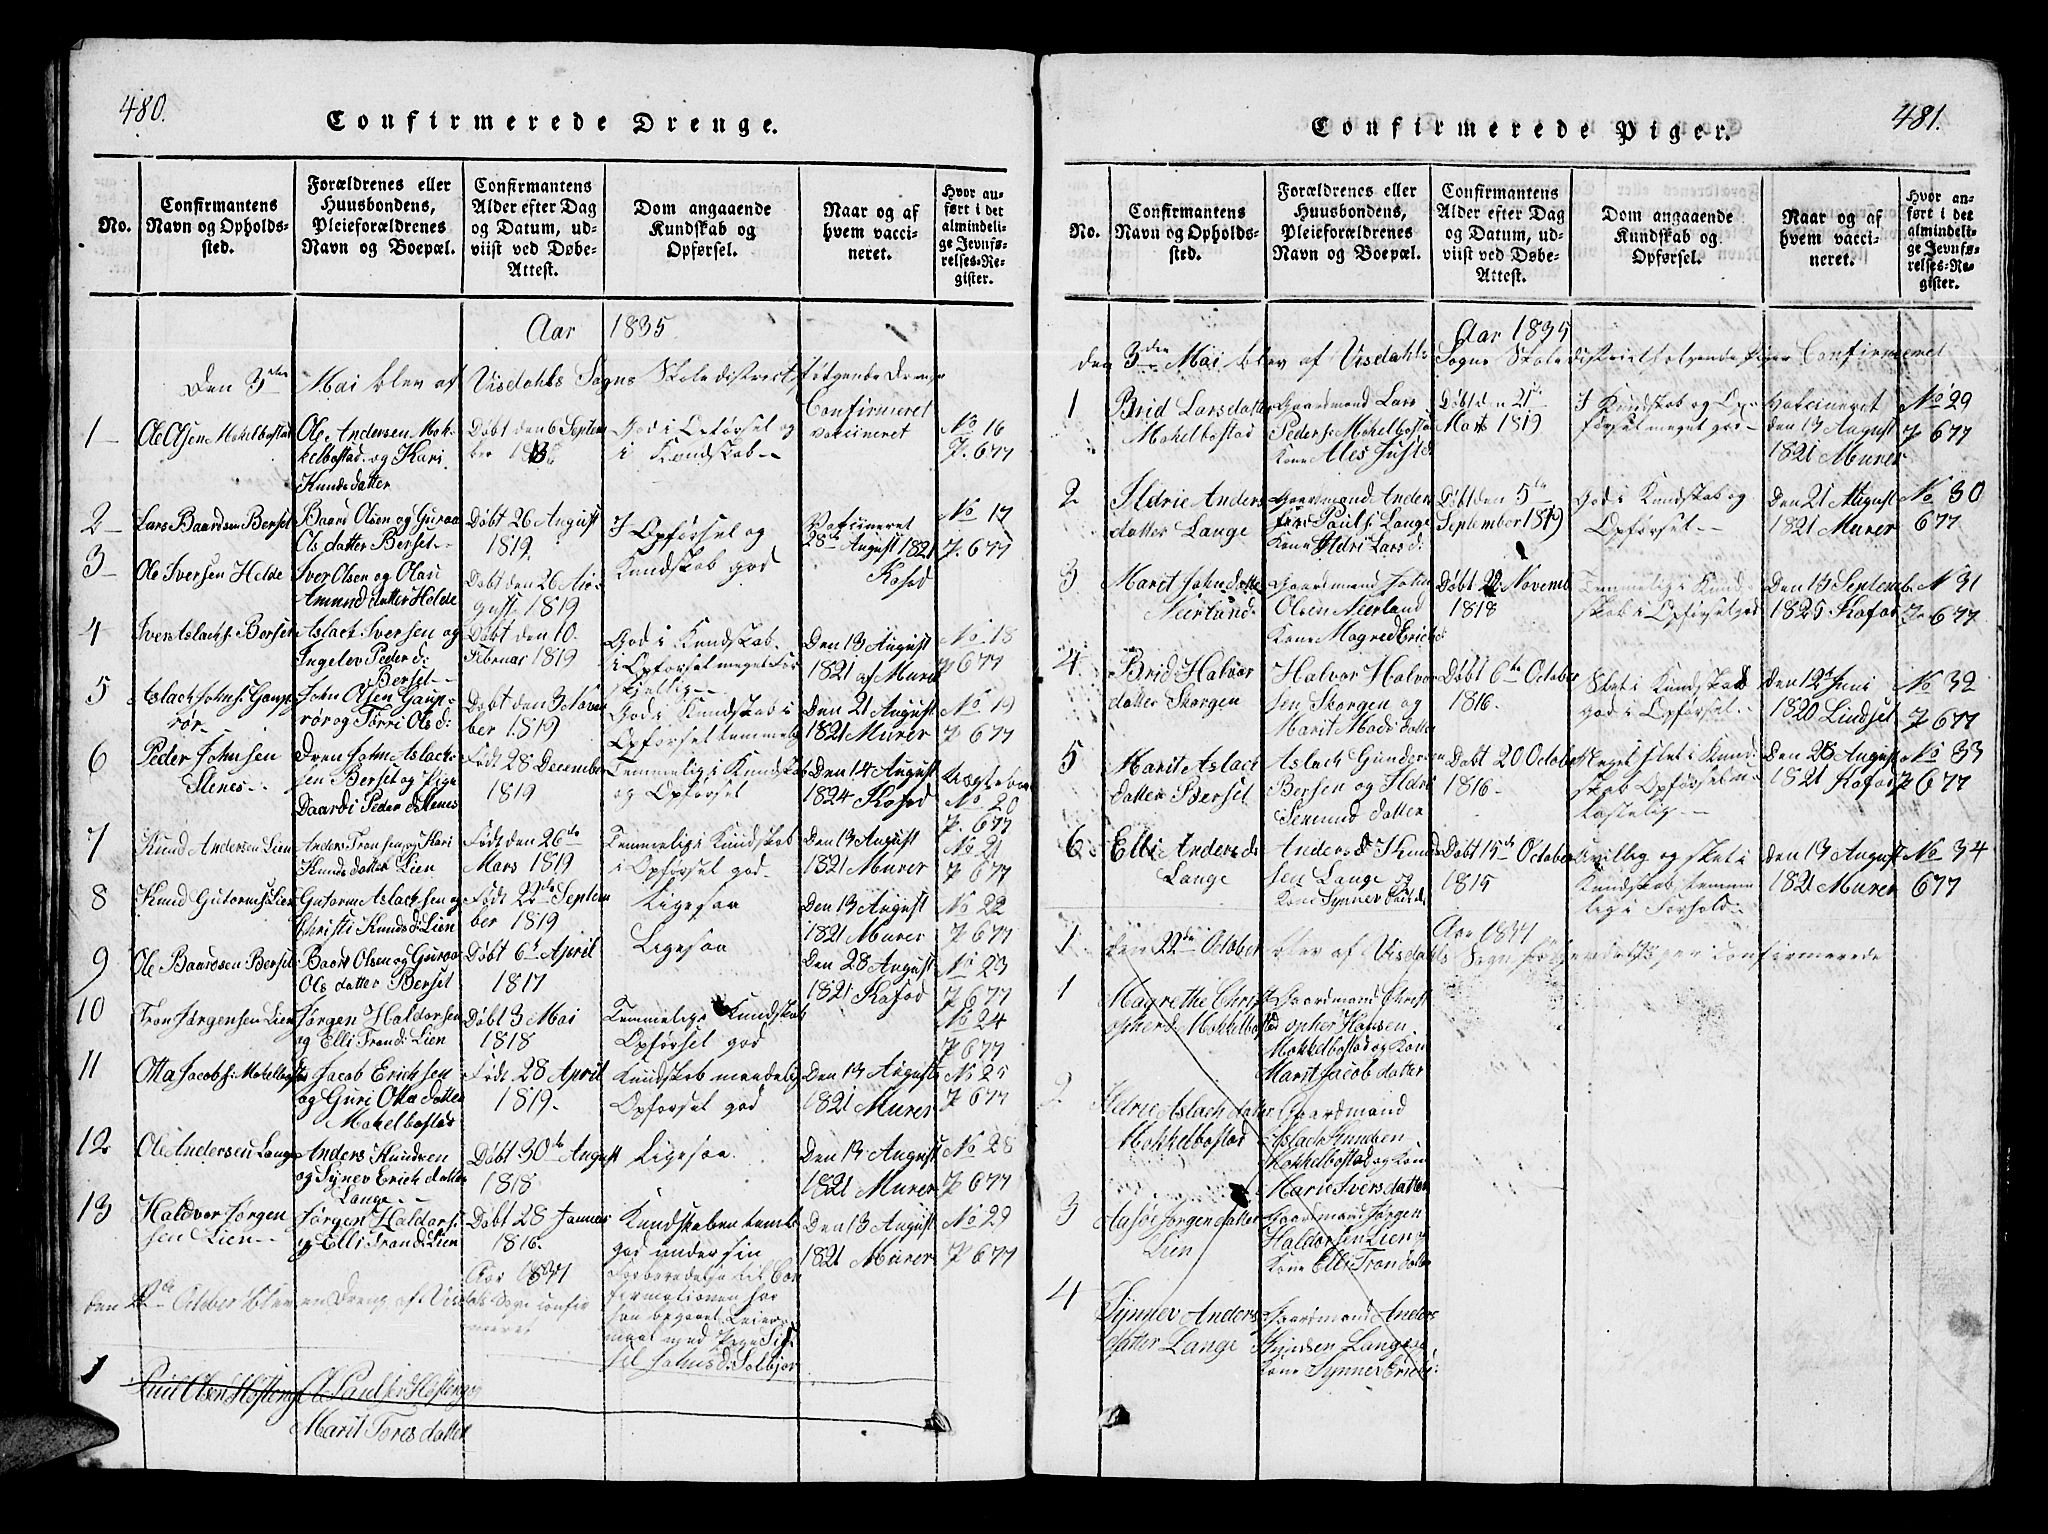 480.
Confirmerede Drenge.
No.
Confirmantens
Navn og Opholds-
sted.
Forældrenes eller
Huusbondens,
Pleieforældrenes
Navn og Boepæl.
Confirmantens
Alder efter Dag
og Datum, ud-
viist ved Døbe-
Attest.
Dom angaaende
Kundskab og
Opførsel.
Naar og af
hvem vacci-
neret.
Hvor an-
ført i det
almindeli-
ge Jevnfø-
relses-Re-
gister.
Aar 1835.
Den 3die Mai blev af Visdahls Sogns Skoledistrict følgende Drenge
Confirmeret
1
Ole Olsen Mokelbostad
Ole Andersen Mok-
kelbostad og Kari
Knudsdatter
Døbt den 6 Septem
ber
God i Opførsel og
i Kundskab
vakcineret
No 16
P. 677
2
Lars Baardsen Berset
Baard Olsen og Guroa
Olsdatter Berset
Døbt 26 August
1819
I Opførsel og
Kundskab god
Vakcineret
28de August 1821
Kofod
No 17
P. 677
3
Ole Iversen Helde
Iver Olsen og Olau
Amunddatter Helde
Døbt den 26 Au-
gust 1819
4
Iver Aslachs. Berset
Aslach Iversen og
Ingelev Peder d:
Berset
Døbt den 10
Februar 1819
God i Kundskab
i Opførsel meget for
skjellig
Den 13 August
1821 af Murer
No 18
P 677
5
Aslach Johns. Gaup-
rør
John Olsen Gaup-
rør og Torri Ols d:
Døbt den 3 Novem
ber 1819
God i Kundskab i
Opførsel temmelig
Den 21 August
1821 Murer
No 19
P 677
6
Peder Johnsen
Stenes
Dren John Aslach-
sen Berset og Pige
Baardi Peder d. Stenes
Født 28 December
1819
Temmelig i Kundskab
og Opførsel
Den 14 August
1824 Kofod
No 20
P. 677
7
Knud Andersen Lien
Anders Tronsen og Kari
Knudsdatter Lien
Født den 26de
Mars 1819
Temmelig i Kundskab
i Opførsel god
Den 13 August
1821 Murer
No 21
P 677
8
Knud Gutorms. Lien
Gutorm Aslachsen og
Christi Knuds d: Lien
Født 22de Septem
ber 1819
Ligesaa
Den 13 August
1821 Murer
No 22
P 677
9
Ole Baardsen Berset
Baard Olsen og Guroa
Olsdatter Berset
Døbt 6te April
1817
Ligesaa
Den 28 August
1821 Kofod
No 23
P 677
10
Tron Jørgensen Lien
Jørgen Haldorsen
og Elli Trond: Lien
Døbt 3 Mai
1818
Temmelig i Kundskab
Opførsel god
No 24
P 677
11
Otta Jacobs: Mokelbostad
Jacob Erichsen
og Guri Ottadatter
Mokelbostad
Født 28 April
1819
Kundskab maadelig
Opførsel god
Den 13 August
1821 Murer
No 25
P 677
12
Ole Andersen Lange
Anders Knudsen
og Synev Erichdatter
Lange
Døbt 30te August
1818
Ligesaa
Den 13 August
1821 Murer
No 28
P 677
13
Haldvor Jørgen
sen Lien
Jørgen Haldors:
og Elli Trond: Lien
Døbt 28 Januar
1816
Kundskaben temlig
god under sin
Forberedelse til Con
firmationen har
han begaaet Leier-
maal med Pige
Johnsd: Solbjør
Den 13 August
1821 Murer
No 29
P 677
Aar 1837
den 22de October blev en Dreng af Visdals Sogn confir
meret
1
Paul Olsen Hosteng
Ole Paulsen Hosteng og
Marit Toresdatter
481.
Confirmerede Piger.
No.
Confirmantens
Navn og Opholds-
sted.
Forældrenes eller
Huusbondens,
Pleieforældrenes
Navn og Boepæl.
Confirmantens
Alder efter Dag
og Datum, ud-
viist ved Døbe-
Attest.
Dom angaaende
Kundskab og
Opførsel.
Naar og af
hvem vacci-
neret.
Hvor an-
ført i det
almindeli-
ge Jevnfø-
relses-Re-
gister.
Aar 1835
den 3den Mai blev af Visdahls Sogns Skoledistrict følgende Piger Confirmeret
1
Brid Larsdatter
Mokelbostad
Gaardmand Lars
Peders: Mokelbostad
Kone Ales Just d:
Døbt den 21de
Marts 1819
I Kundskab og Op-
førsel meget god
Vakcineret
den 13 August
1821 Murer
No 29
P 677
2
Ildrie Anders
datter Lange
Gaardmand Anders
Pauls: Lange
Kone Ildri Lars d:
Døbt den 5te
September 1819
God i Kundskab og
Opførsel
Den 21 August
1821 Murer
No 30
677
3
Marit Johnsdatter
Neerland
Gaardmand John
Olsen Neerland
Kone Magred Erichs d:
Døbt 22 Novemb
1818
Temmelig i Kund-
skab i Opførsel god
Den 13 Septemb.
1825 Kofod
No 31
P 677
4
Brid Halvor
datter Skorgen
Halvor Halvor
sen Skorgen og
Marit Madsdatter
Døbt 6te October
1816
Slet i Kundskab
god i Opførsel
den 12te Juni
1820 Lindset
No 32
P 677
5
Marit Aslach
datter Berset
Aslach Gundersen
Bersen og Ildri
Semunddatter
Døbt 20 October
1816
Meget slet i Kund-
skab Opførsel
kostelig
Den 28 August
1821 Kofod
No 33
P 677
6
Elli Anders d:
Lange
Anders Knud
sen Lange og
Kone Synnev
Døbt 15de October
1815
Uvillig og slet i
Kundskab temme
lig i Forhold
Den 13 August
1821 Murer
No 34
677
Aar 1837
1
Den 22de October blev af Visdahls Sogn følgende Piger confirmerede
1
Magrethe Christ
opherd: Mokkelbostad
Gaardmand Christ
opher Hansen
Mokkelbostad og Kone
Marit Jacobdatter
2
Ildrie Aslachdatter
Mokkelbostad
Gaardmand
Aslach Knudsen
Mokkelbostad og Kone
Marie Iversdatter
3
Aasøe Jørgendatter
Lien
Gaardmand Jørgen
Haldorsen Lien og
Kone Elli Trondsdatter
4
Synnev Anders
datter Lange
Gaardmand Anders
Knudsen Lange og
Kone Synnev Erichs d: